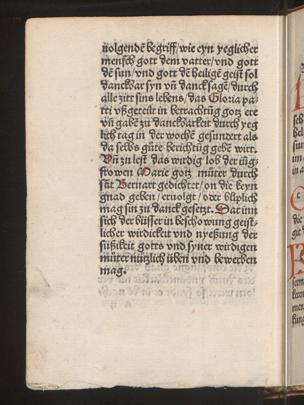 uolgendē begriff/ wie eyn yeglicher
mensch gott dem vatter/ vnd gott
dē sun/ vnd gott dē heiligē geist sol
danckbar syn vñ danck sagē/ durch
alle zitt sins lebens/ das Gloria pa-
tri vßgeteilt in betrachtūg gotz ere
vñ gabē zu danckbarkeit durch yeg
lich tag in der wochē gesundert als
da selbs gūte berichtūg gebē wirt.
Vñ zu lest das wirdig lob der iūg-
frowen Marie gotz mūter durch
sāt Bernart gedichtet/ on die keyn
gnad geben/ eruolgt/ oder bliplich
mag sin zu danck gesetzt. Dat inn
sich der büsser in beschowung geist-
licher wirdickeit vnd nyeßung der
süssikeit gotts vnd syner wirdigen
mūter nützlich üben vnd bewerben
mag.